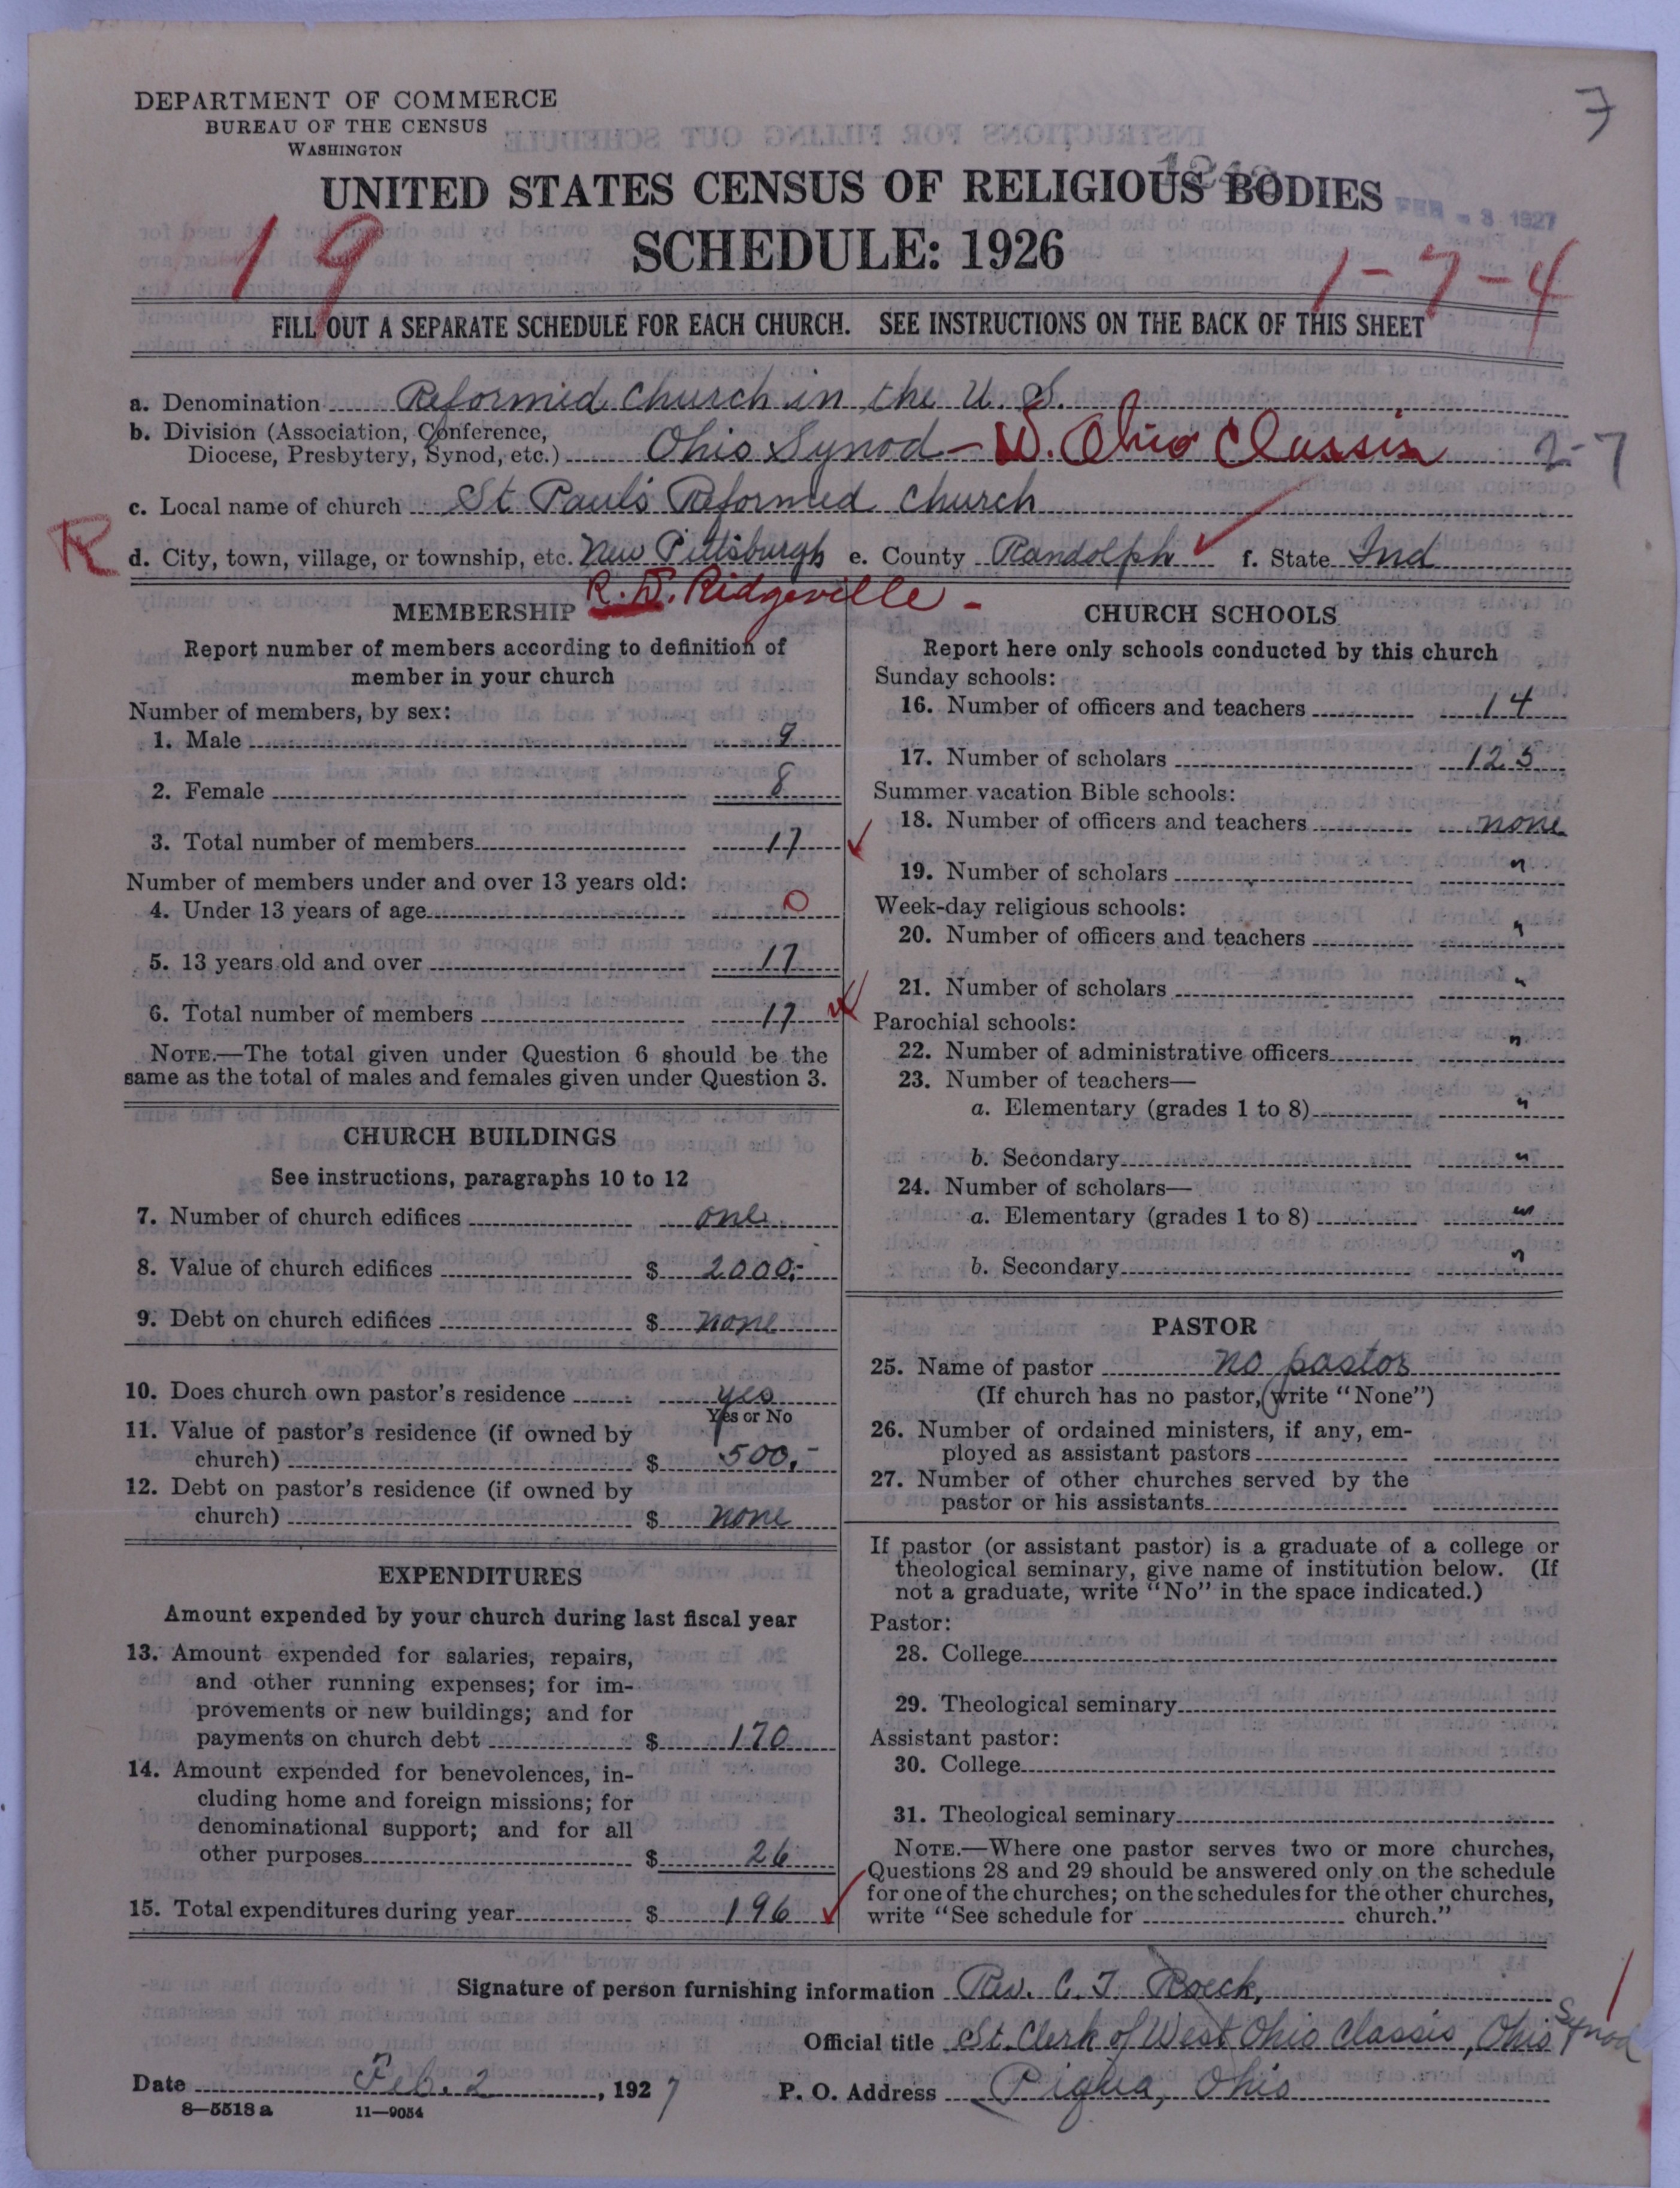 7
DEPARTMENT OF COMMERCE
BUREAU OF THE CENSUS
WASHINGTON
UNITED STATES CENSUS OF RELIGIOUS BODIES
FEB - 3 1927
SCHEDULE: 1926
19
1-7-4
FILL OUT A SEPARATE SCHEDULE FOR EACH CHURCH. SEE INSTRUCTIONS ON THE BACK OF THIS SHEET
a. Denomination Reformed Church in the U. S.
b. Division (Association, Conference,
Diocese, Presbytery, Synod, etc.) Ohio Synod - W. Ohio Classis 2-7
c. Local name of church St Paul's Reformed Church
R
d. City, town, village, or township, etc. New Pittsburgh e. County Randolph f. State Ind
R.D. Ridgeville -
MEMBERSHIP
Report number of members according to definition of
member in your church
Number of members, by sex:
1. Male 9
2. Female 8
3. Total number of members 17
Number of members under and over 13 years old:
4. Under 13 years of age 0
5. 13 years old and over 17
6. Total number of members 17
NOTE.—The total given under Question 6 should be the
same as the total of males and females given under Question 3.
CHURCH BUILDINGS
See instructions, paragraphs 10 to 12
7. Number of church edifices one
8. Value of church edifices $ 2000.-
9. Debt on church edifices $ none
10. Does church own pastor's residence yes
Yes or No
11. Value of pastor's residence (if owned by
church) $ 500.-
12. Debt on pastor's residence (if owned by
church) $ none
EXPENDITURES
Amount expended by your church during last fiscal year
13. Amount expended for salaries, repairs,
and other running expenses; for im-
provements or new buildings; and for
payments on church debt $ 170
14. Amount expended for benevolences, in-
cluding home and foreign missions; for
denominational support; and for all
other purposes $ 26
15. Total expenditures during year $ 196
CHURCH SCHOOLS
Report here only schools conducted by this church
Sunday schools:
16. Number of officers and teachers 14
17. Number of scholars 125
Summer vacation Bible schools:
18. Number of officers and teachers none
19. Number of scholars "
Week-day religious schools:
20. Number of officers and teachers "
21. Number of scholars "
Parochial schools:
22. Number of administrative officers "
23. Number of teachers—
a. Elementary (grades 1 to 8) "
b. Secondary "
24. Number of scholars—
a. Elementary (grades 1 to 8) "
b. Secondary "
PASTOR
25. Name of pastor no pastor
(If church has no pastor, write "None")
26. Number of ordained ministers, if any, em-
ployed as assistant pastors
27. Number of other churches served by the
pastor or his assistants
If pastor (or assistant pastor) is a graduate of a college or
theological seminary, give name of institution below. (If
not a graduate, write "No" in the space indicated.)
Pastor:
28. College
29. Theological seminary
Assistant pastor:
30. College
31. Theological seminary
NOTE.—Where one pastor serves two or more churches,
Questions 28 and 29 should be answered only on the schedule
for one of the churches; on the schedules for the other churches,
write "See schedule for church."
Signature of person furnishing information Rev. C. F. Roeck,
Official title St. Clerk of West Ohio Classis, Ohio Synod
Date Feb. 2, 1927 P. O. Address Piqua, Ohio
8—5518 a 11—9054